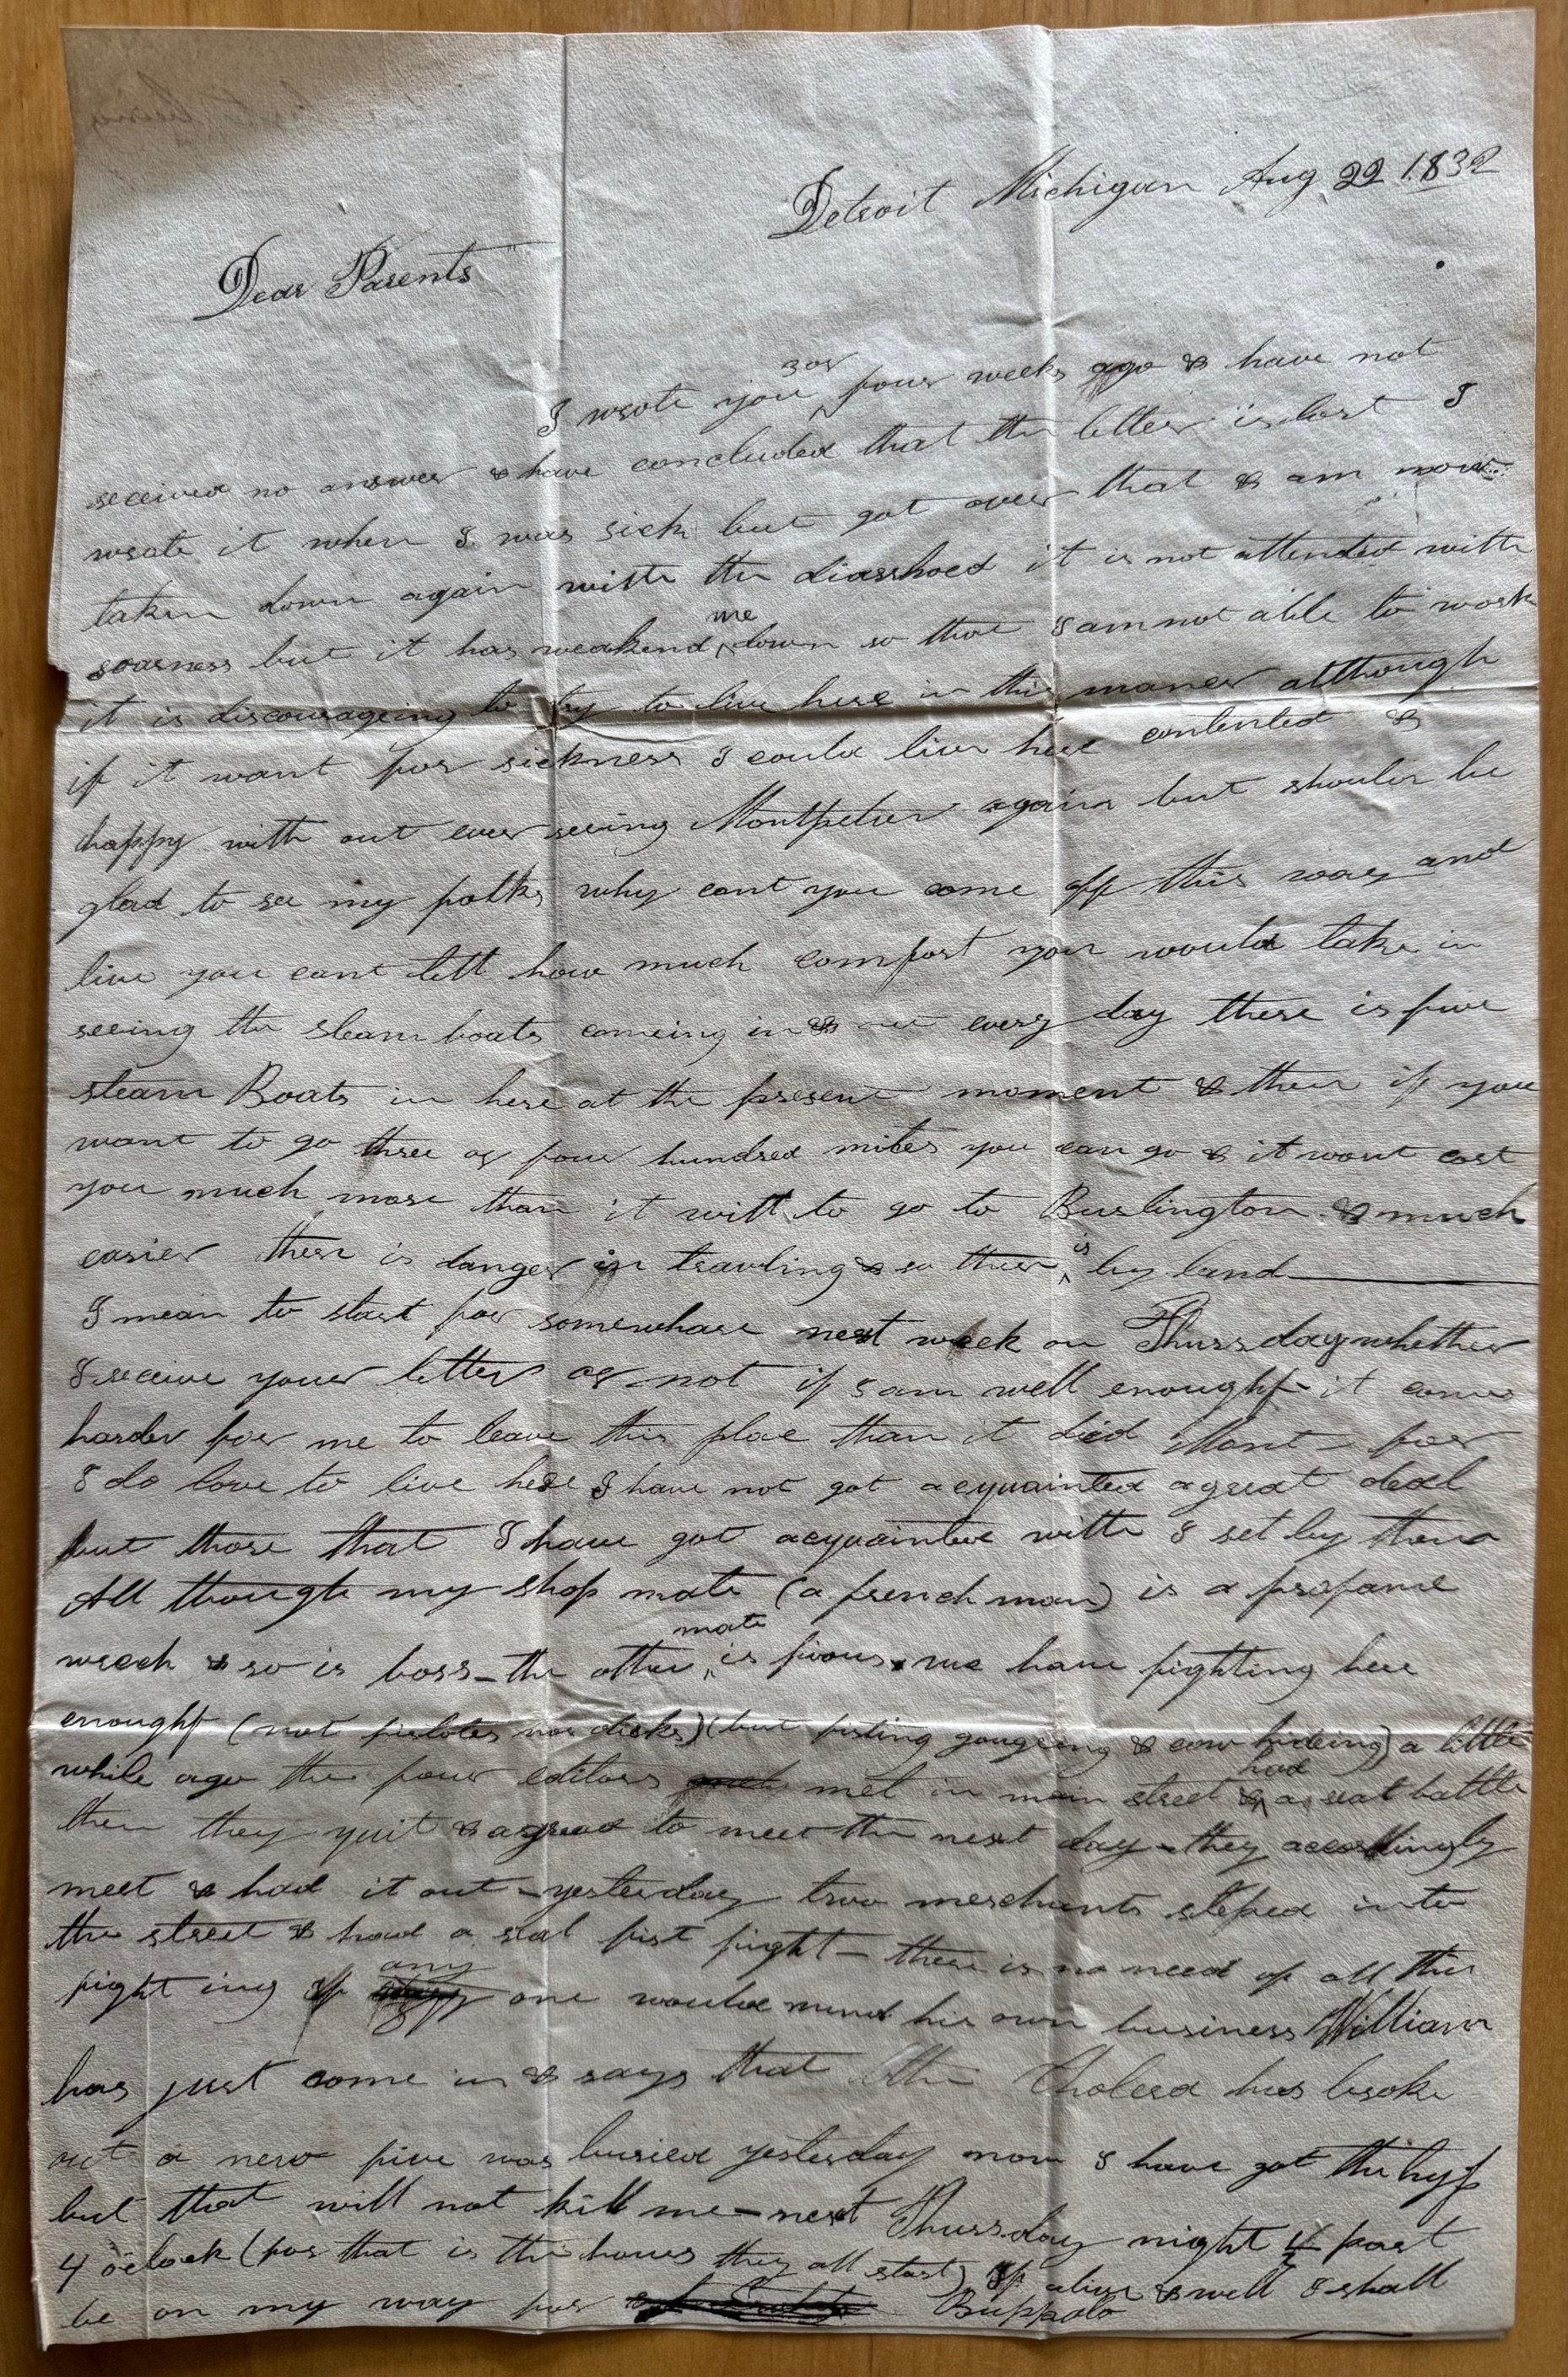 Detroit Michigan Aug 22 1832
Dear Parents
I wrote you 3 or four weeks ago & have not
received no answer & have concluded that the letter is lost I
wrote it when I was sick but got over that & am now
taken down again with the diarrhoea it is not attended with
soarness but it has weakend me down so that I am not able to work
it is discourageing to try to live here in this maner although
if it want for sickness I could live here contented &
happy with out ever seeing Montpelier again but should be
glad to see my folks why cant you come off this way and
live you cant tell how much comfort you would take in
seeing the steam boats comeing in & out every day there is five
steam Boats in here at the present moment & then if you
want to go three or four hundred miles you can go & it wont cost
you much more than it will to go to Burlington & much
easier there is danger in travling & so there is by land
I mean to start for somewhare next week on Thursday whether
I receive your letter or not if I am well enough it comes
harder for me to leave this place than it did Mont- for
I do love to live here I have not got acquainted a great deal
but those that I have got acquainted with I set by them
All though my shop mate (a french man) is a profane
wrech & so is boss - the other mate is pious. we have fighting here
enough (not pistoles nor dirks) (but fisting gougeing & cow hideing) a little
while ago the four editors met in main street & had a real battle
then they quit & agread to meet the next day - they accordingly
meet & had it out - yesterday two merchants steped into
the street & had a real fist fight - there is no need of all this
fight ing if any one would mind his own business William
has just come in & says that the Cholera has broke
out a new five was buried yesterday now I have got the hyp
but that will not kill me - next Thursday night ½ past
4 oclock (for that is the hour they all start) if alive & well I shall
be on my way for Buffalo